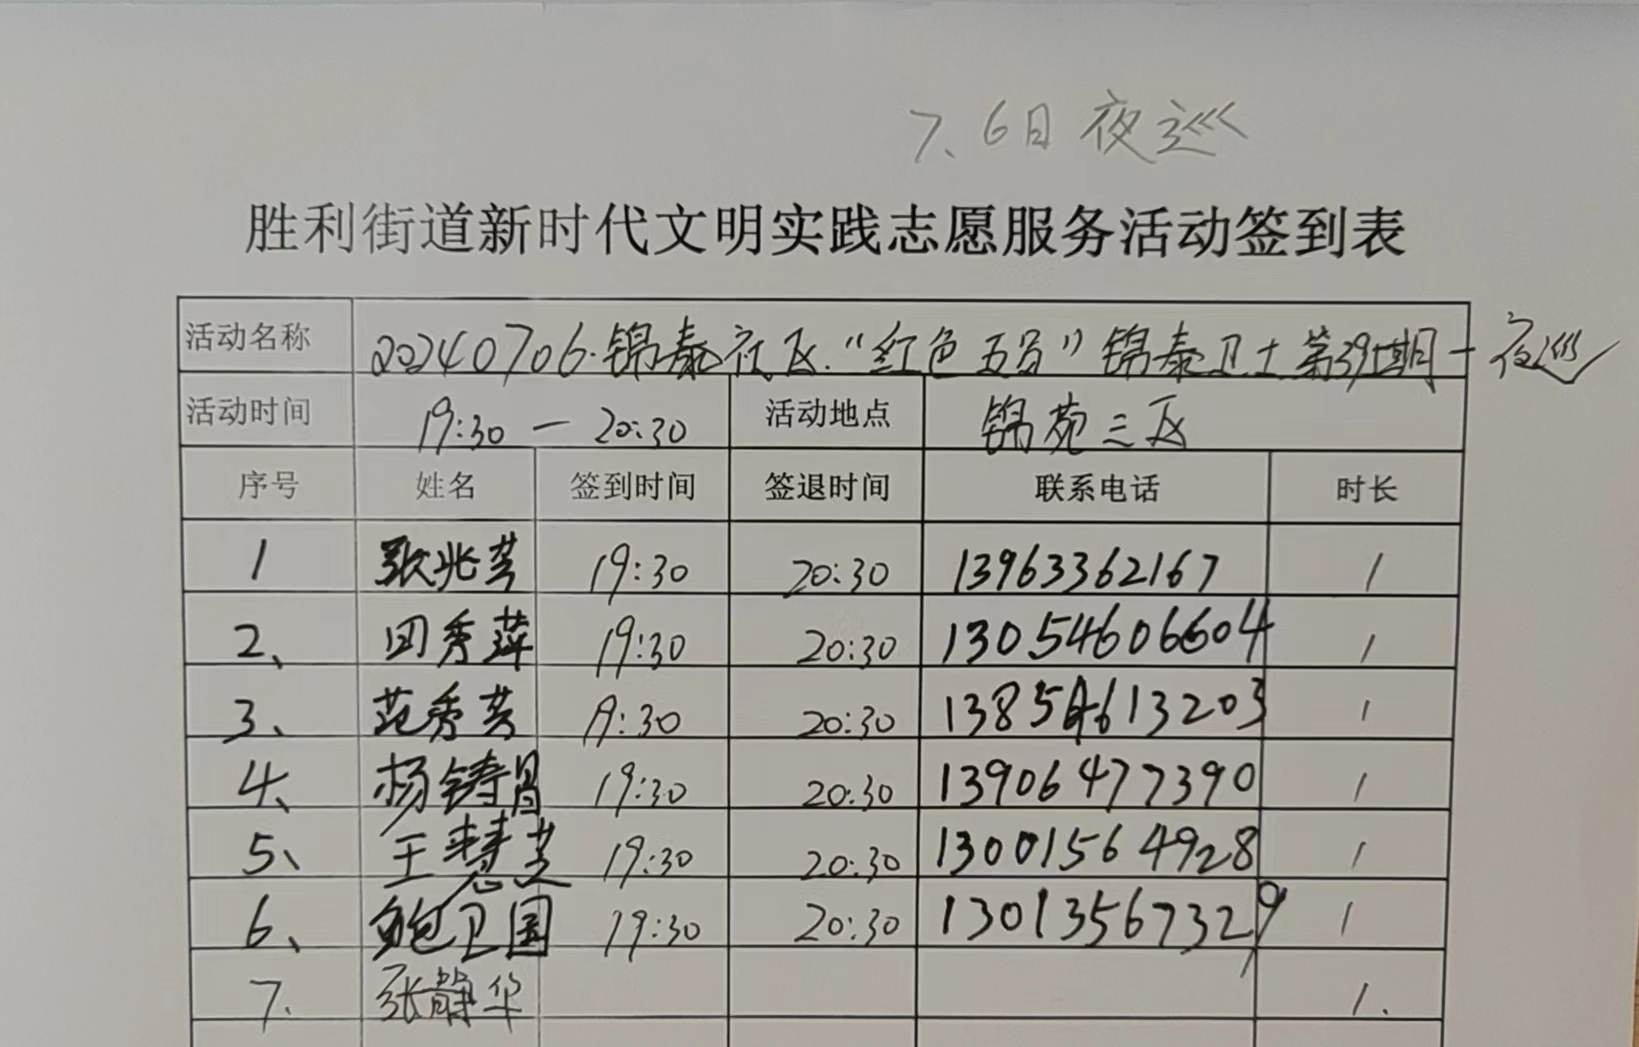 7.6日夜巡
胜利街道新时代文明实践志愿服务活动签到表
活动名称 20240706·锦泰社区"红色五员"锦泰卫士第39期-夜巡
活动时间 19:30-20:30 活动地点 锦苑三区
序号 姓名 签到时间 签退时间 联系电话 时长
1 张兆芳 19:30 20:30 13963362167 1
2、 田秀萍 19:30 20:30 13054606604 1
3、 范秀芳 19:30 20:30 13854613203 1
4、 杨铸 19:30 20:30 13906477390 1
5、 王慧芝 19:30 20:30 13001564928 1
6、 鲍卫国 19:30 20:30 13013567329 1
7. 张静华 1.